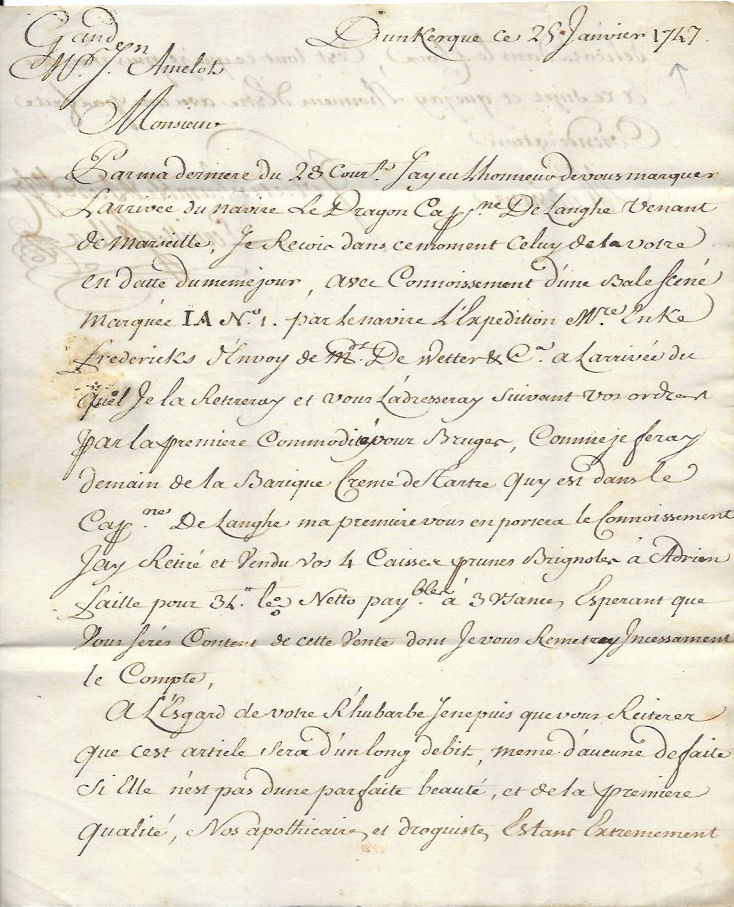 Gand Dunkerque ce 25 Janvier 1747.
Mr. Jn Amelot
Monsieur
Par ma derniere du 23 Courtt. Jay eu Lhonneur de vous marquer
Larrivée du navire Le Dragon Capne De Langhe Venant
de Marseille, Je Recois dans ce moment Celuy de la votre
en datte du meme jour, avec Connoissement d'une Bale Sené
Marquée IA No. 1. par le navire L'Expedition Mre Enke
frederichs d'Envoy de Mrs. De Wetter & Ca. a Larrivée du
quel Je la Retireray et vous L'adresseray Suivant vos ordres
par la premiere Commodité pour Bruges, Comme je feray
demain de la Barique Creme de Tartre quy est dans le
Capne. De Langhe ma premiere vous en portera le Connoissement
Jay Retiré et Vendu vos 4 Caisses prunes Brignoles à Adrien
Laille pour 34.tt le % Netto payables à 3 Usances, Esperant que
Vous serés Content de cette Vente dont Je vous Remetray Incessament
le Compte,
A L'Esgard de votre Rhubarbe Je ne puis que vous Reiterer
que cest article sera d'un long debit, meme d'aucune defaite
si Elle n'est pas dune parfaite beauté, et de la premiere
qualité, Nos apothicaires et droguistes Estant Extremement